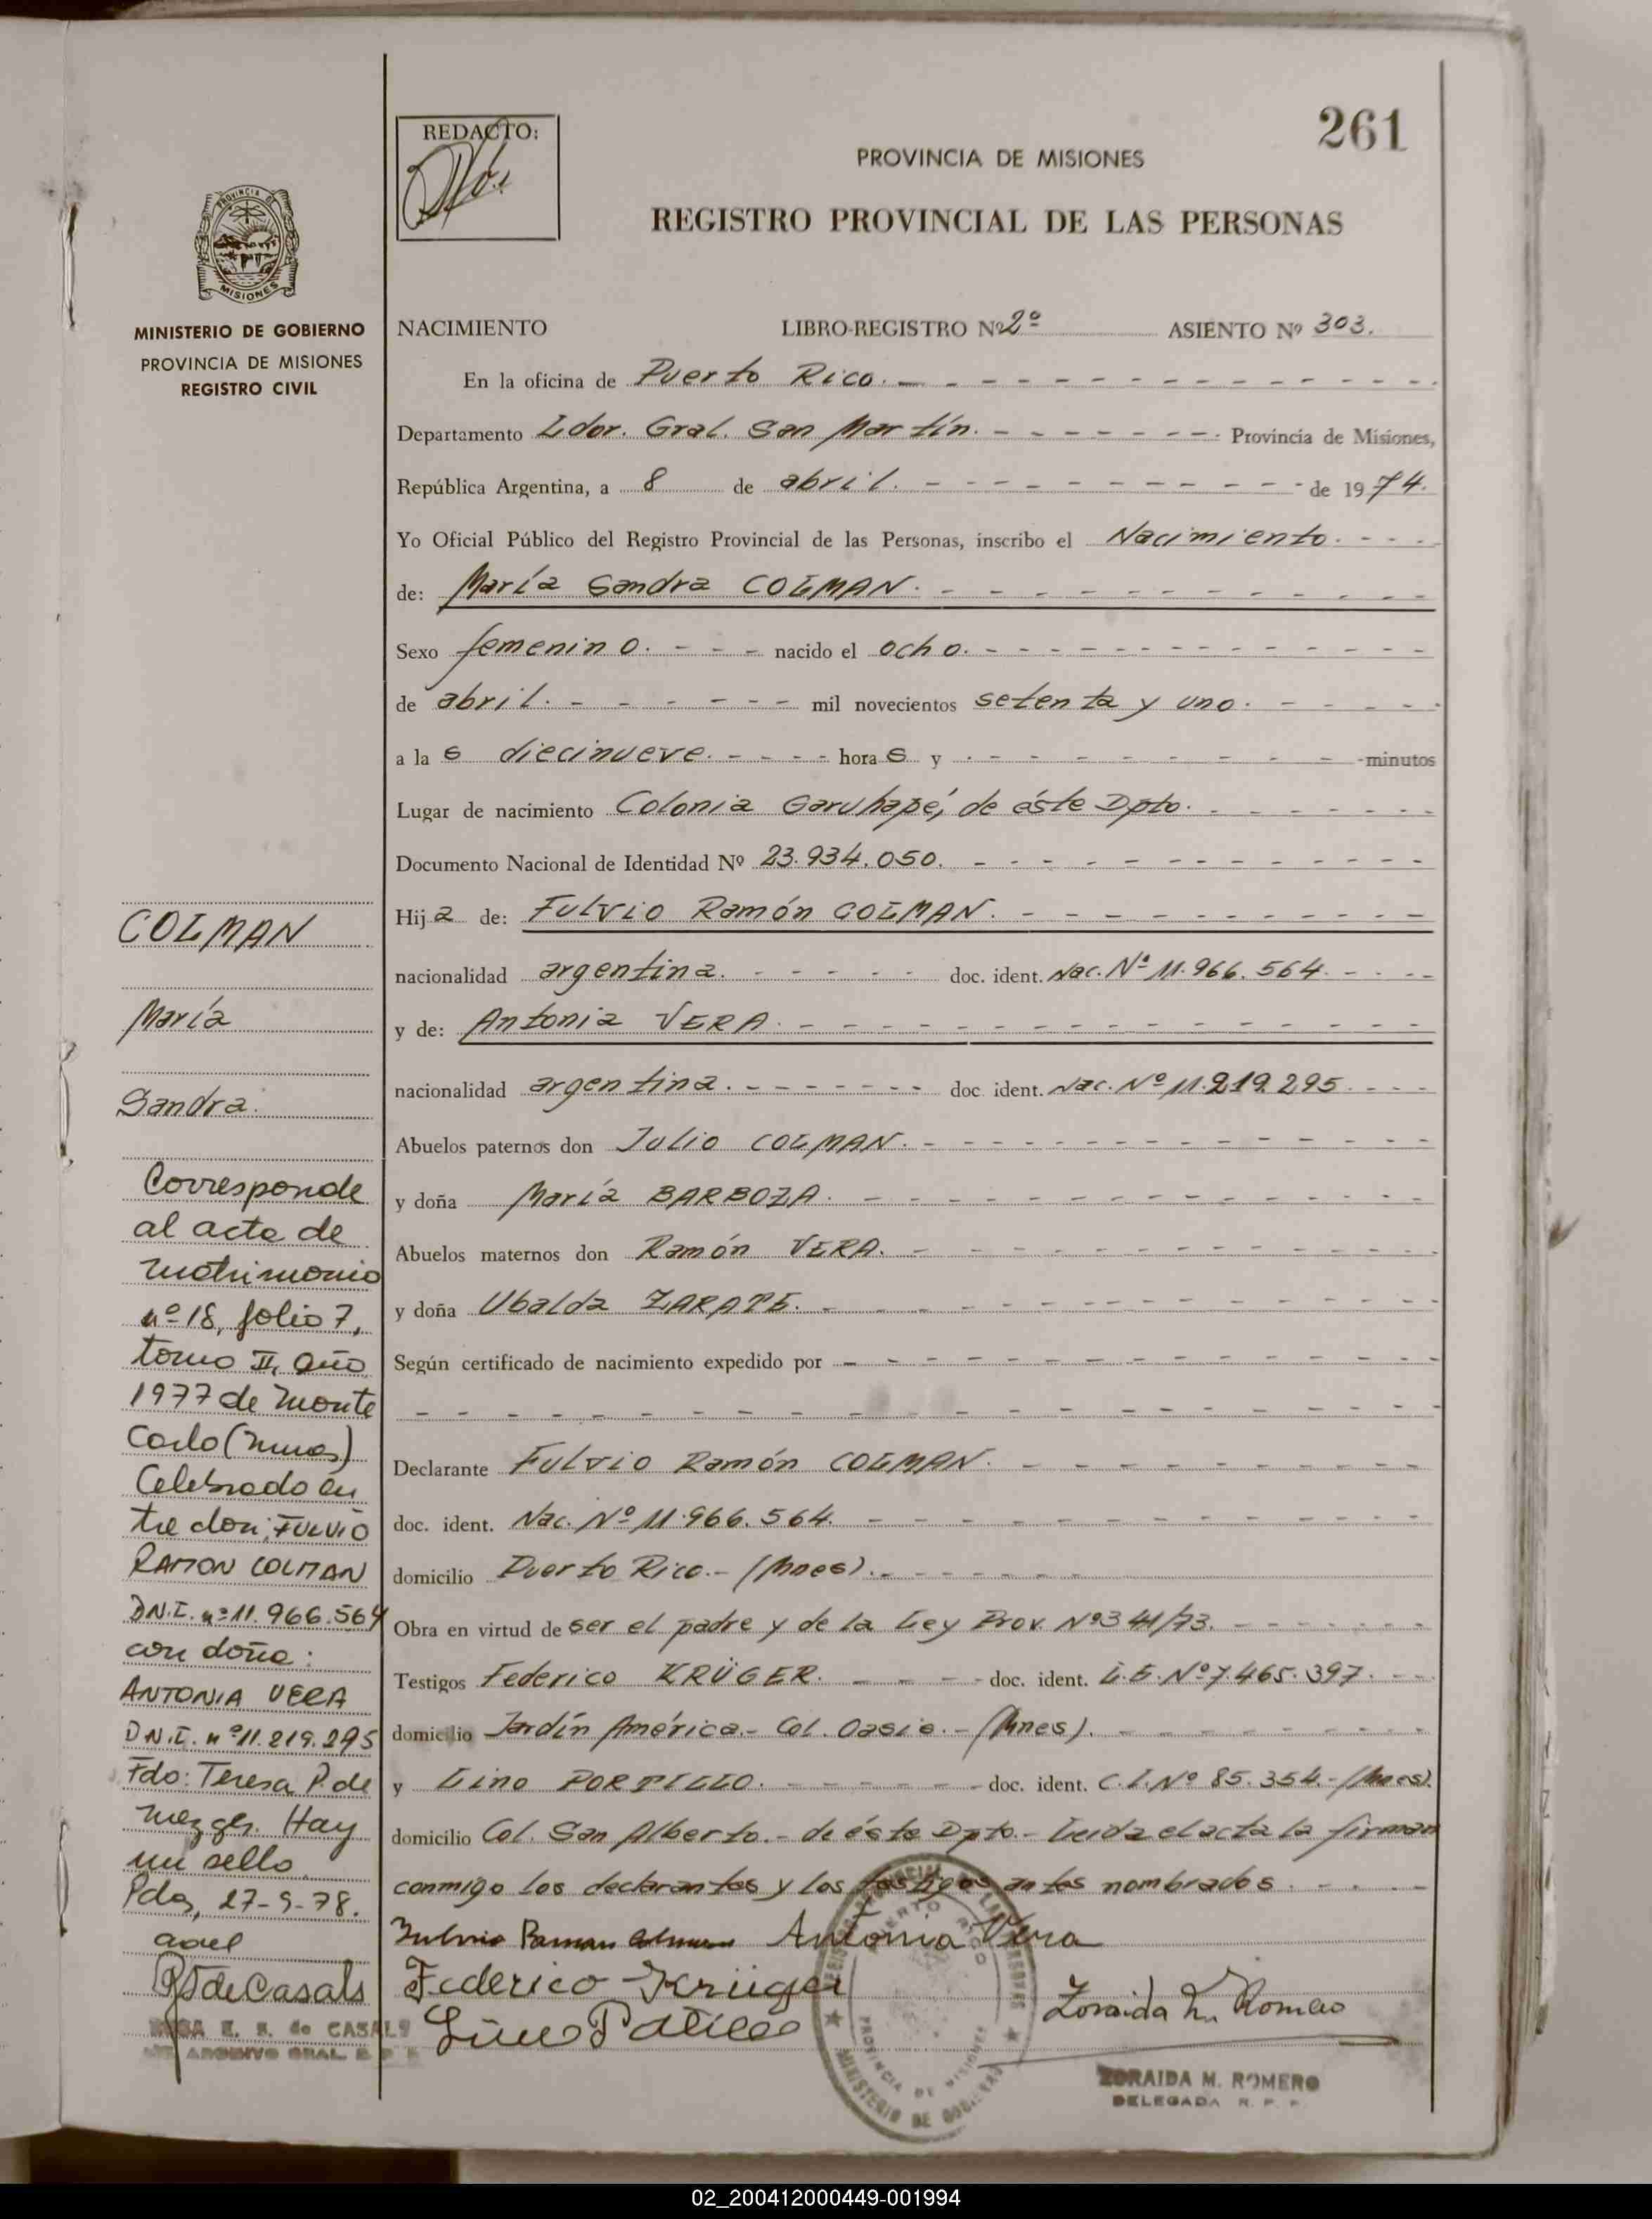 261
REDACTO:
PROVINCIA DE MISIONES
REGISTRO PROVINCIAL DE LAS PERSONAS
PROVINCIA DE
MISIONES
MINISTERIO DE GOBIERNO
PROVINCIA DE MISIONES
REGISTRO CIVIL
NACIMIENTO LIBRO-REGISTRO Nº 2º ASIENTO Nº 303.
En la oficina de Puerto Rico.
Departamento Ldor. Gral. San Martín. Provincia de Misiones,
República Argentina, a 8 de abril. de 1974.
Yo Oficial Público del Registro Provincial de las Personas, inscribo el Nacimiento.
de: María Sandra COLMAN.
Sexo femenino. nacido el ocho.
de abril. mil novecientos setenta y uno.
a las diecinueve. horas y minutos
Lugar de nacimiento Colonia Garuhapé, de éste Dpto.
Documento Nacional de Identidad Nº 23.934.050.
Hija de: Fulvio Ramón COLMAN.
nacionalidad argentina. doc. ident. Nac. Nº 11.966.564
y de: Antonia VERA.
nacionalidad argentina. doc. ident. Nac. Nº 11.219.295
Abuelos paternos don Julio COLMAN.
y doña María BARBOZA.
Abuelos maternos don Ramón VERA.
y doña Ubalda ZARATE.
Según certificado de nacimiento expedido por
Declarante Fulvio Ramón COLMAN.
doc. ident. Nac. Nº 11.966.564.
domicilio Puerto Rico.- (Mnes).
Obra en virtud de ser el padre y de la Ley Prov. Nº 341/73.
Testigos Federico KRÜGER. doc. ident. L.E. Nº 7.465.397.
domicilio Jardín América.- Col. Oasis.- (Mnes).
y Lino PORTILLO. doc. ident. C.I. Nº 85.354.- (Mnes).
domicilio Col. San Alberto.- de éste Dpto.- Leida el acta la firman
conmigo los declarantes y los testigos antes nombrados.
Fulvio Raman Colman Antonia Vera
Federico Krüger
Zoraida M. Romero
ZORAIDA M. ROMERO
DELEGADA R. P. P.
PUERTO RICO
PROVINCIA DE MISIONES
MINISTERIO DE GOBIERNO
COLMAN
María
Sandra.
Corresponde
al acta de
Matrimonio
nº 18, folio 7,
tomo II, año
1977 de Monte
Carlo (Mnes)
Celebrado en
tre don: FULVIO
RAMON COLMAN
DN.I. nº 11.966.564
con doña:
ANTONIA VERA
DN.I. nº 11.219.295
Fdo: Teresa P. de
Mezger. Hay
un sello
Pdas, 27-9-78.
de Casals
E. S. de CASALS
ARCHIVO GRAL.
02_200412000449-001994